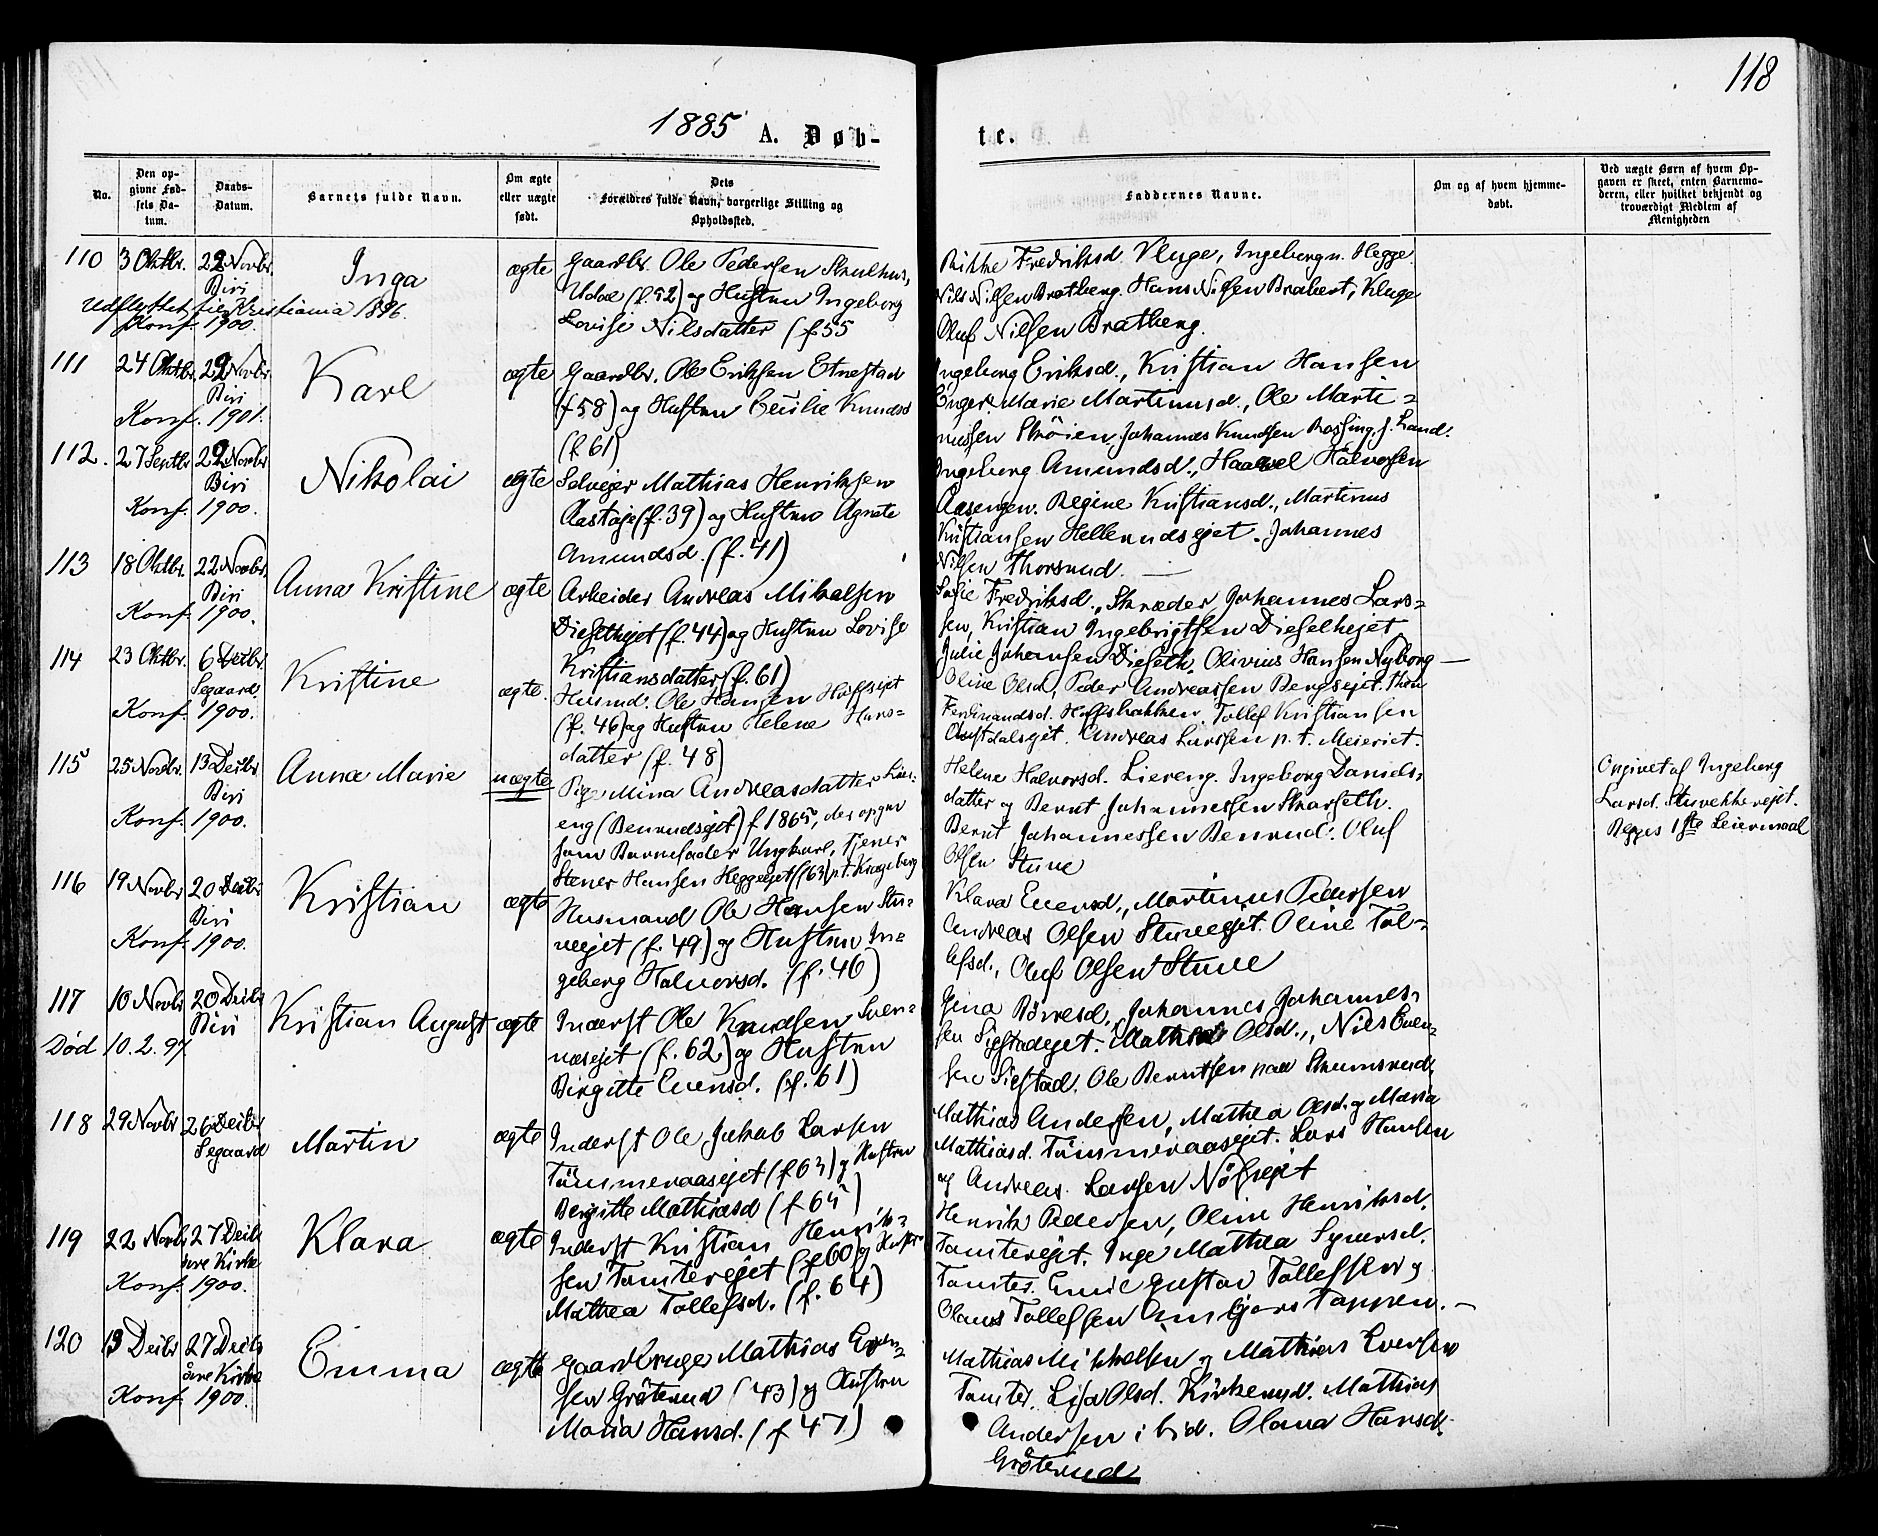 118
1885 A. Døb-
te.
No.
Den op-
givne Fød-
sels Da-
tum.
Daabs-
Datum.
Barnets fulde Navn.
Om ægte
eller uægte
født.
Dets
Forældres fulde Navn, borgerlige Stilling og
Opholdssted.
Faddernes Navne.
Om og af hvem hjemme-
døbt.
Ved uægte Børn af hvem Op-
gaven er skeet, enten Barnemo-
deren, eller hvilket bekjendt og
troværdigt Medlem af
Menigheden
110 3 Oktbr. 22 Novbr. Biri
Inga
ægte
Gaardbr. Ole Pedersen
(f. 52) og Hustru Ingeborg
Lovise Nilsdatter (f. 55
Udflyttet til Kristiania 1896.
Konf. 1900.
Fredriksd. Kluge, Ingeborg n. Hegge.
Nils Nilsen Bratberg. Hans Nilsen Kluge
Oluf Nilsen Bratberg.
111 24 Oktbr. 22 Novbr. Biri
Karl
ægte
Gaardbr. Ole Eriksen Etnestad
(f 58) og Hustru Cecilie Knudsd
(f. 61)
Konf. 1901.
Ingeborg Eriksd., Kristian Hansen
Enger. Marie Martinusd., Ole Marti-
nussen Skrøien. Johannes Knudsen Land.
112. 27 Septbr. 22 Novbr. Biri
Nikolai
ægte
Selveier Mathias Henriksen
(f. 39) og Hustru Agnete
Amundsd. (f. 41)
Konf. 1900.
Ingeborg Amundsd., Haavel Halvorsen
Aasengen. Regine Kristiansd., Martinus
Kristiansen Hellerudsejet. Johannes
Nilsen Thorsrud.
113 18 Oktbr. 22 Novbr. Biri
Anna Kristine
ægte
Arbeider Andreas Mikalsen
(f. 44) og Hustru Lovise
Kristiansdatter (f. 61)
Konf. 1900.
Fredriksd., Skræder Johannes Lars-
sen, Kristian Ingebrigtsen
Julie Johansen Dieseth. Olivius Hansen Nyborg
114 23 Oktbr. 6 Decbr. Segaard
Kristine
ægte.
Husmd. Ole Hansen
(f. 46) og Hustru Helene Hans-
datter (f. 48)
Konf. 1900.
Oline Olsd, Peder Andreassen Bergsejet.
Ferdinandsd. Tollef Kristiansen
Andreas Larssen p. t. Meieriet.
115 25 Novbr. 13 Decbr. Biri
Anna Marie
uægte
Pige Mina Andreasdatter Lier-
eng (Benrudsejet) f 1865, der opgav
som Barnefader Ungkarl, Tjener
Stener Hansen Heggeejet (f 63) p.t.
Konf. 1900.
Helene Halvorsd. Liereng. Ingeborg Daniels-
datter og Bernt Johannessen Skarseth.
Bernt Johannessen Benrud. Oluf
Olsen Stuve
Opgivet af Ingeborg
Larsd. Stuvekkeejet.
Begges 1ste Leiermaal
116 19 Novbr 20 Decbr Biri
Kristian
ægte
Husmand Ole Hansen Stu-
veejet (f. 49) og Hustru In-
geborg Halvorsd. (f. 46)
Konf. 1900.
Klara Evensd., Martinus Pedersen
Andreas Olsen Stuveejet. Oline Tol-
lefsd., Oluf Olsen Stuve
117 10 Novbr 20 Decbr Biri
Kristian August
ægte
Inderst Ole Knudsen Sven-
næsejet (f. 62) og Hustru
Birgitte Evensd. (f. 61)
Død 10. 2. 97
Gina Børresd., Johannes Johannes-
sen Sigstadejet. Mathea Olsd., Nils Even-
sen Sigstad. Ole Berntsen paa Skumsrud.
118 29 Novbr 26 Decbr Segaard
Martin
ægte
Inderst Ole Jakob Larsen
Tømmeraasejet (f 63) og Hustru
Birgitte Mathiasd (f 65)
Mathias Andersen, Mathea Olsd. og Maria
Mathiasd. Tømmeraasejet. Lars Hansen
og Andreas Larsen
119 22 Novbr 27 Decbr øvre Kirke
Klara
ægte
Inderst Kristian Henrik-
sen Tomterejet (f 60) og Hustru
Mathea Tollefsd. (f. 64)
Konf. 1900.
Henrik Pedersen, Oline Henriksd.
Tomterejet. Inge Mathea Syversd.
Tomter. Emil Gustav Tollefsen og
Olaus Tollefsen
120 13 Decbr 27 Decbr øvre Kirke
Emma
ægte
Gaardbruger Mathias Even-
sen Gröterud (43) og Hustru
Maria Hansd. (f 47)
Konf 1900.
Mathias Mikkelsen og Mathias Evensen
Tomter. Lisa Olsd. Kirkerud. Mathias
Andersen ibid. Olava Hansd.
Gröterud